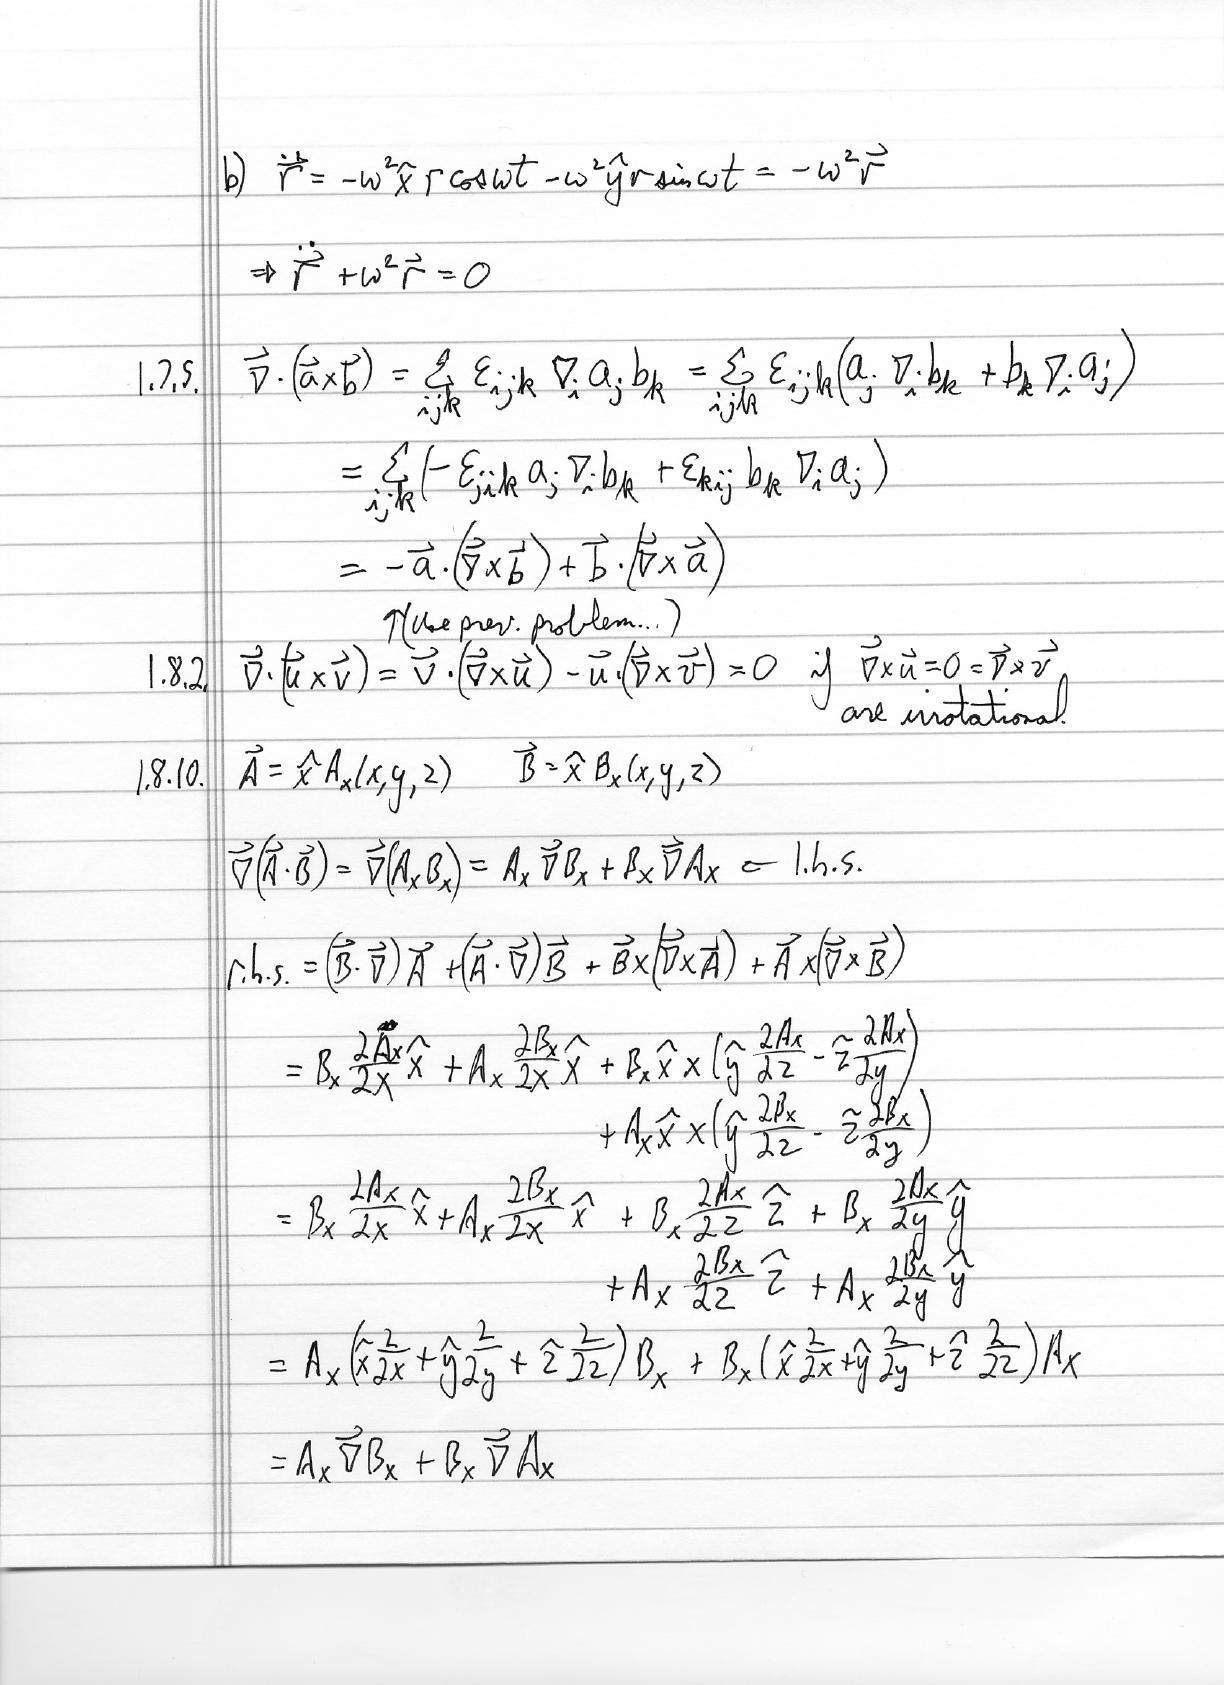 b) $\ddot{\vec{r}} = -\omega^2 \hat{x} r \cos\omega t - \omega^2 \hat{y} r \sin\omega t = -\omega^2 \vec{r}$
$\Rightarrow \ddot{\vec{r}} + \omega^2 \vec{r} = 0$
1.7.5. $\vec{\nabla} \cdot (\vec{a} \times \vec{b}) = \sum_{ijk} \varepsilon_{ijk} \nabla_i a_j b_k = \sum_{ijk} \varepsilon_{ijk} (a_j \nabla_i b_k + b_k \nabla_i a_j)$
$= \sum_{ijk} (-\varepsilon_{jik} a_j \nabla_i b_k + \varepsilon_{kij} b_k \nabla_i a_j)$
$= -\vec{a} \cdot (\vec{\nabla} \times \vec{b}) + \vec{b} \cdot (\vec{\nabla} \times \vec{a})$
↑(Use prev. problem...)
1.8.2. $\vec{\nabla} \cdot (\vec{u} \times \vec{v}) = \vec{v} \cdot (\vec{\nabla} \times \vec{u}) - \vec{u} \cdot (\vec{\nabla} \times \vec{v}) = 0$ if $\vec{\nabla} \times \vec{u} = 0 = \vec{\nabla} \times \vec{v}$,
are irrotational.
1.8.10. $\vec{A} = \hat{x} A_x(x,y,z)$ $\vec{B} = \hat{x} B_x(x,y,z)$
$\vec{\nabla}(\vec{A} \cdot \vec{B}) = \vec{\nabla}(A_x B_x) = A_x \vec{\nabla} B_x + B_x \vec{\nabla} A_x$ ← l.h.s.
r.h.s. $= (\vec{B} \cdot \vec{\nabla}) \vec{A} + (\vec{A} \cdot \vec{\nabla}) \vec{B} + \vec{B} \times (\vec{\nabla} \times \vec{A}) + \vec{A} \times (\vec{\nabla} \times \vec{B})$
$= B_x \frac{\partial A_x}{\partial x} \hat{x} + A_x \frac{\partial B_x}{\partial x} \hat{x} + B_x \hat{x} \times (\hat{y} \frac{\partial A_x}{\partial z} - \hat{z} \frac{\partial A_x}{\partial y})$
$+ A_x \hat{x} \times (\hat{y} \frac{\partial B_x}{\partial z} - \hat{z} \frac{\partial B_x}{\partial y})$
$= B_x \frac{\partial A_x}{\partial x} \hat{x} + A_x \frac{\partial B_x}{\partial x} \hat{x} + B_x \frac{\partial A_x}{\partial z} \hat{z} + B_x \frac{\partial A_x}{\partial y} \hat{y}$
$+ A_x \frac{\partial B_x}{\partial z} \hat{z} + A_x \frac{\partial B_x}{\partial y} \hat{y}$
$= A_x (\hat{x} \frac{\partial}{\partial x} + \hat{y} \frac{\partial}{\partial y} + \hat{z} \frac{\partial}{\partial z}) B_x + B_x (\hat{x} \frac{\partial}{\partial x} + \hat{y} \frac{\partial}{\partial y} + \hat{z} \frac{\partial}{\partial z}) A_x$
$= A_x \vec{\nabla} B_x + B_x \vec{\nabla} A_x$